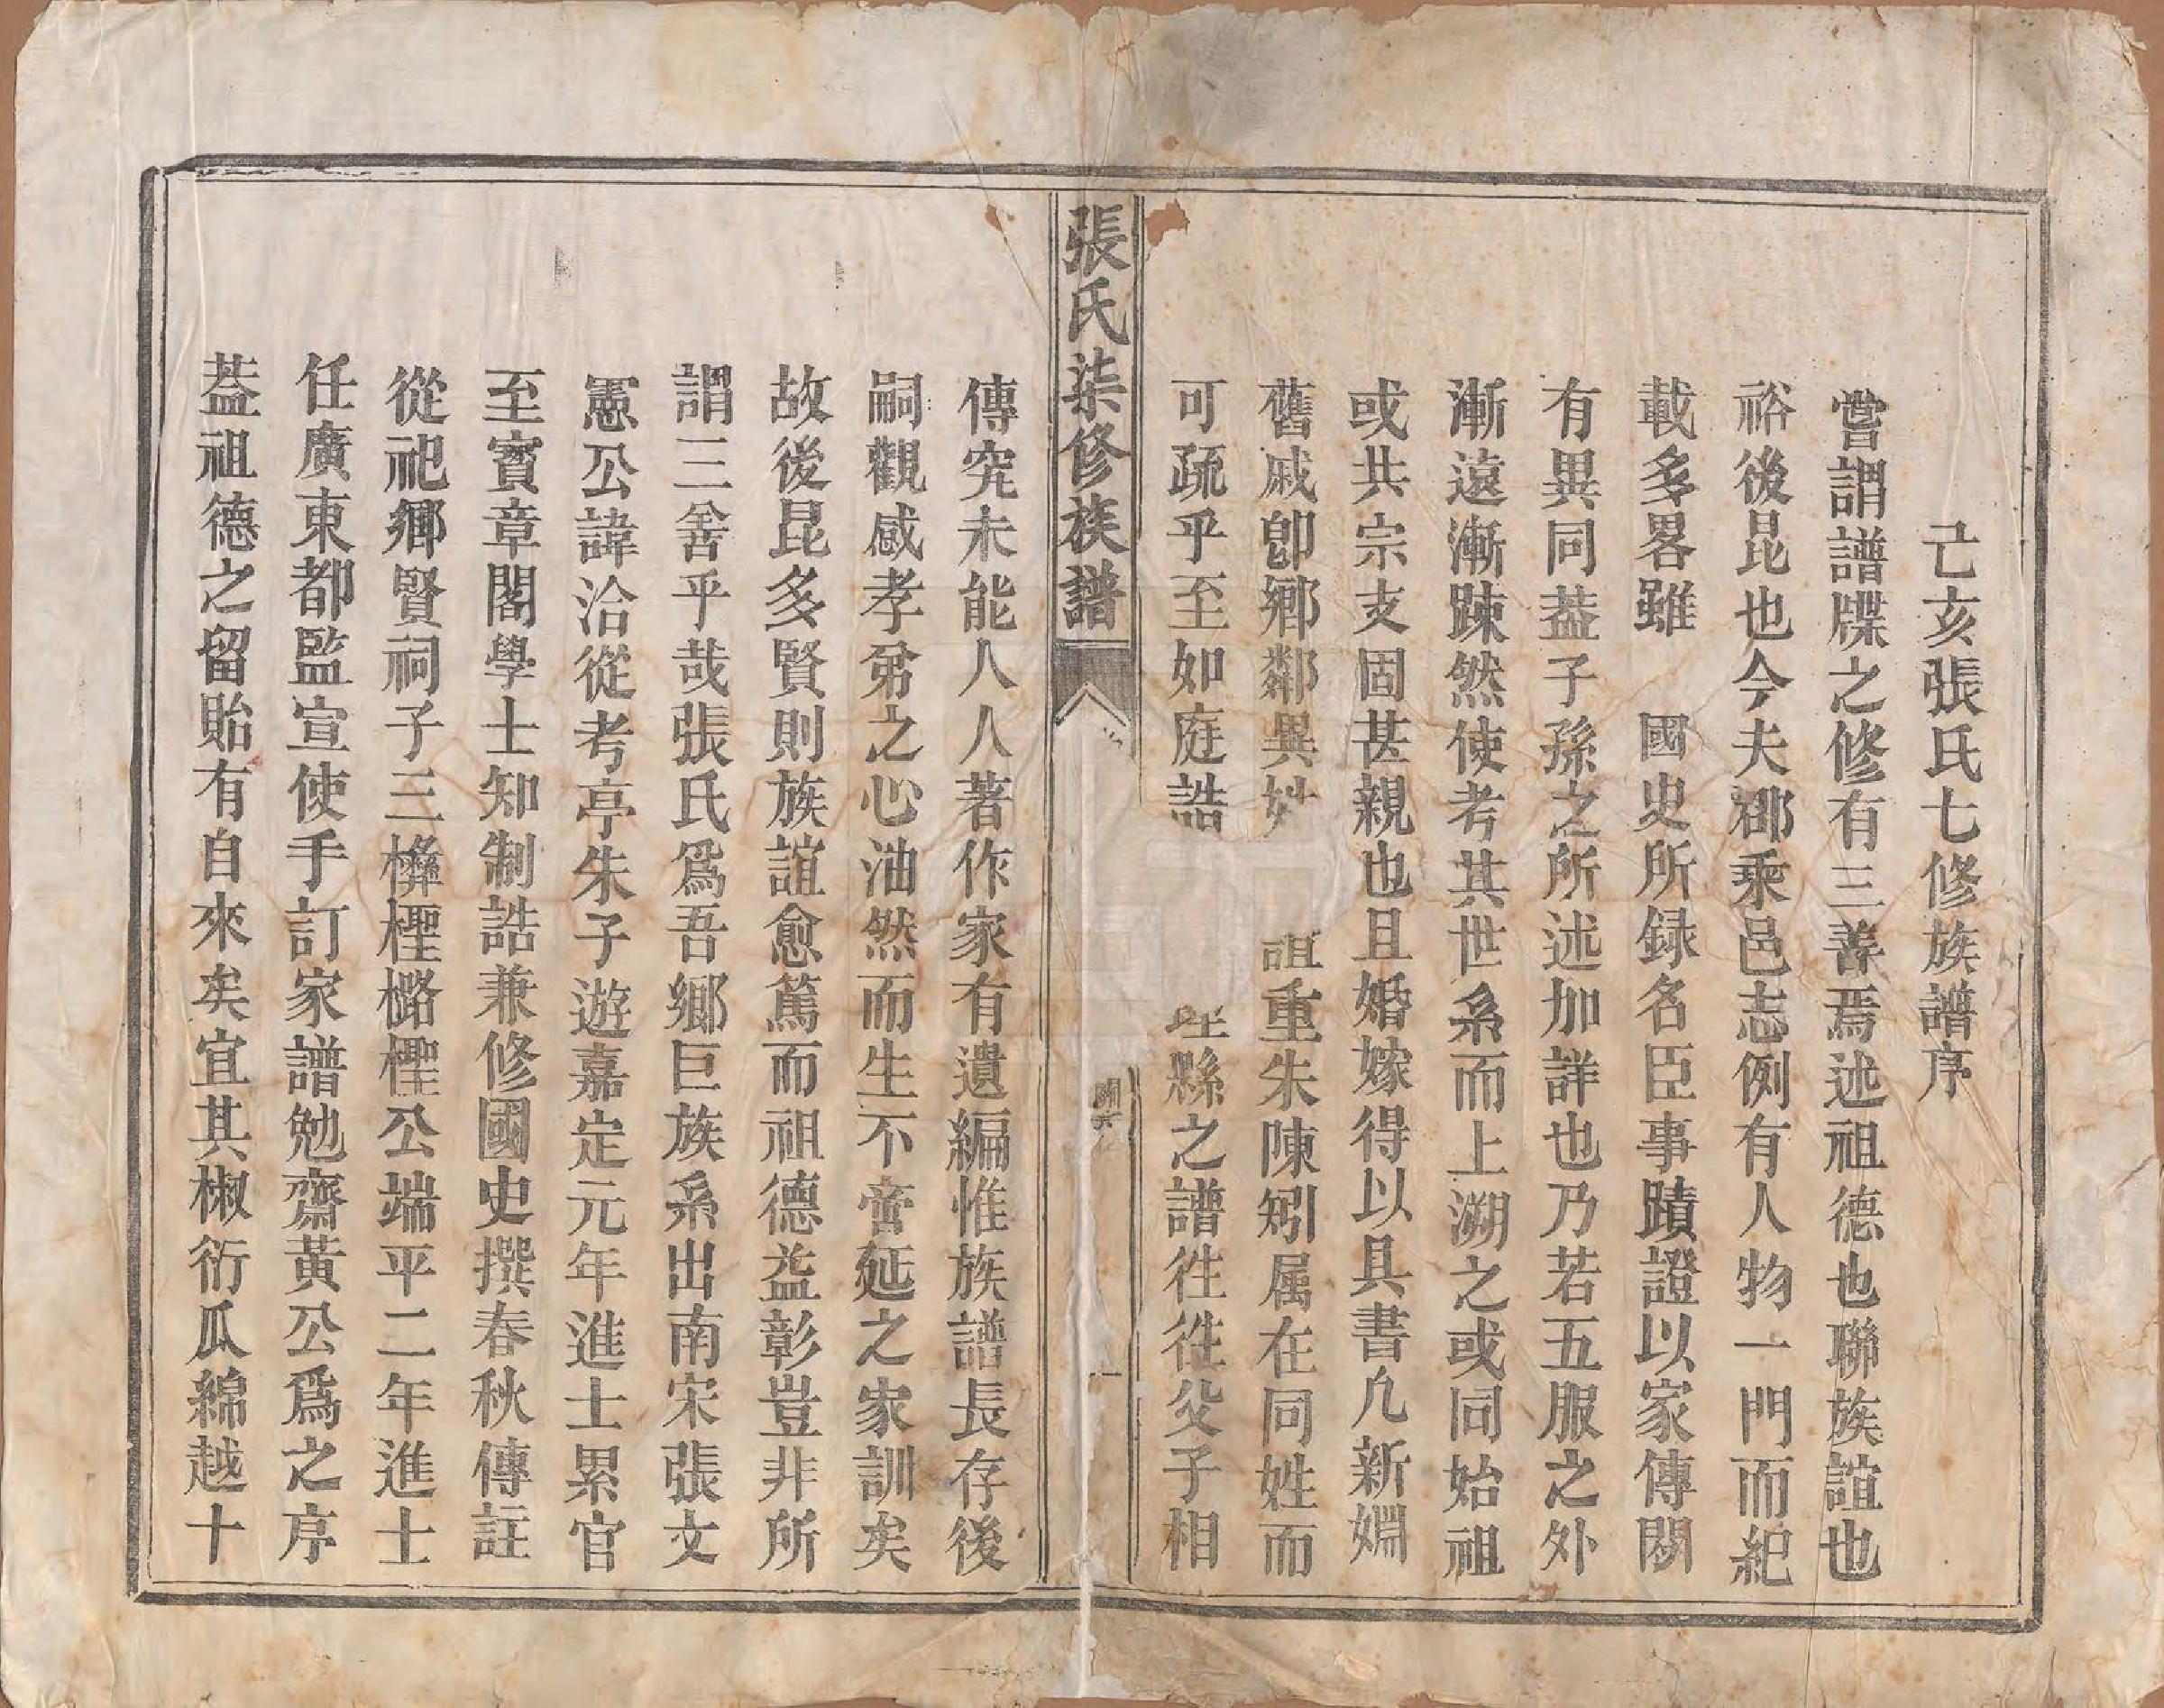 己亥張氏七修族譜序
嘗謂譜牒之修有三善焉述祖德也聯族誼也
裕後昆也今夫郡乘邑志例有人物一門而紀
載多畧雖國史所録名臣事蹟證以家傳閟
有異同葢子孫之所述加詳也乃若五服之外
漸遠漸踈然使考其世系而上溯之或同始祖
或共宗支固甚親也且婚嫁得以具書凢新婣
舊戚卽鄉鄰異重朱陳矧属在同姓而
可疏乎至如庭誥縣之譜徃徃父子相
張氏柒修族譜
一
傳究未能人人著作家有遺編惟族譜長存後
嗣觀感孝弟之心油然而生不啻延之家訓矣
故後昆多賢則族誼愈篤而祖德益彰豈非所
謂三善乎哉張氏爲吾鄉巨族系出南宋張文
憲公諱洽從考亭朱子遊嘉定元年進士累官
至寶章閣學士知制誥兼修國史撰春秋傳註
從祀鄉賢祠子三櫸檉樚檉公端平二年進士
任廣東都監宣使手訂家譜勉齋黃公爲之序
葢祖德之留貽有自來矣宜其椒衍瓜綿越十